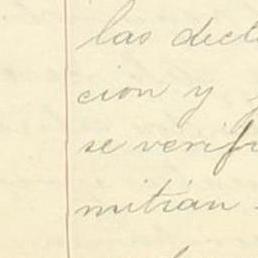 las decl
cion y
se verif
mitian